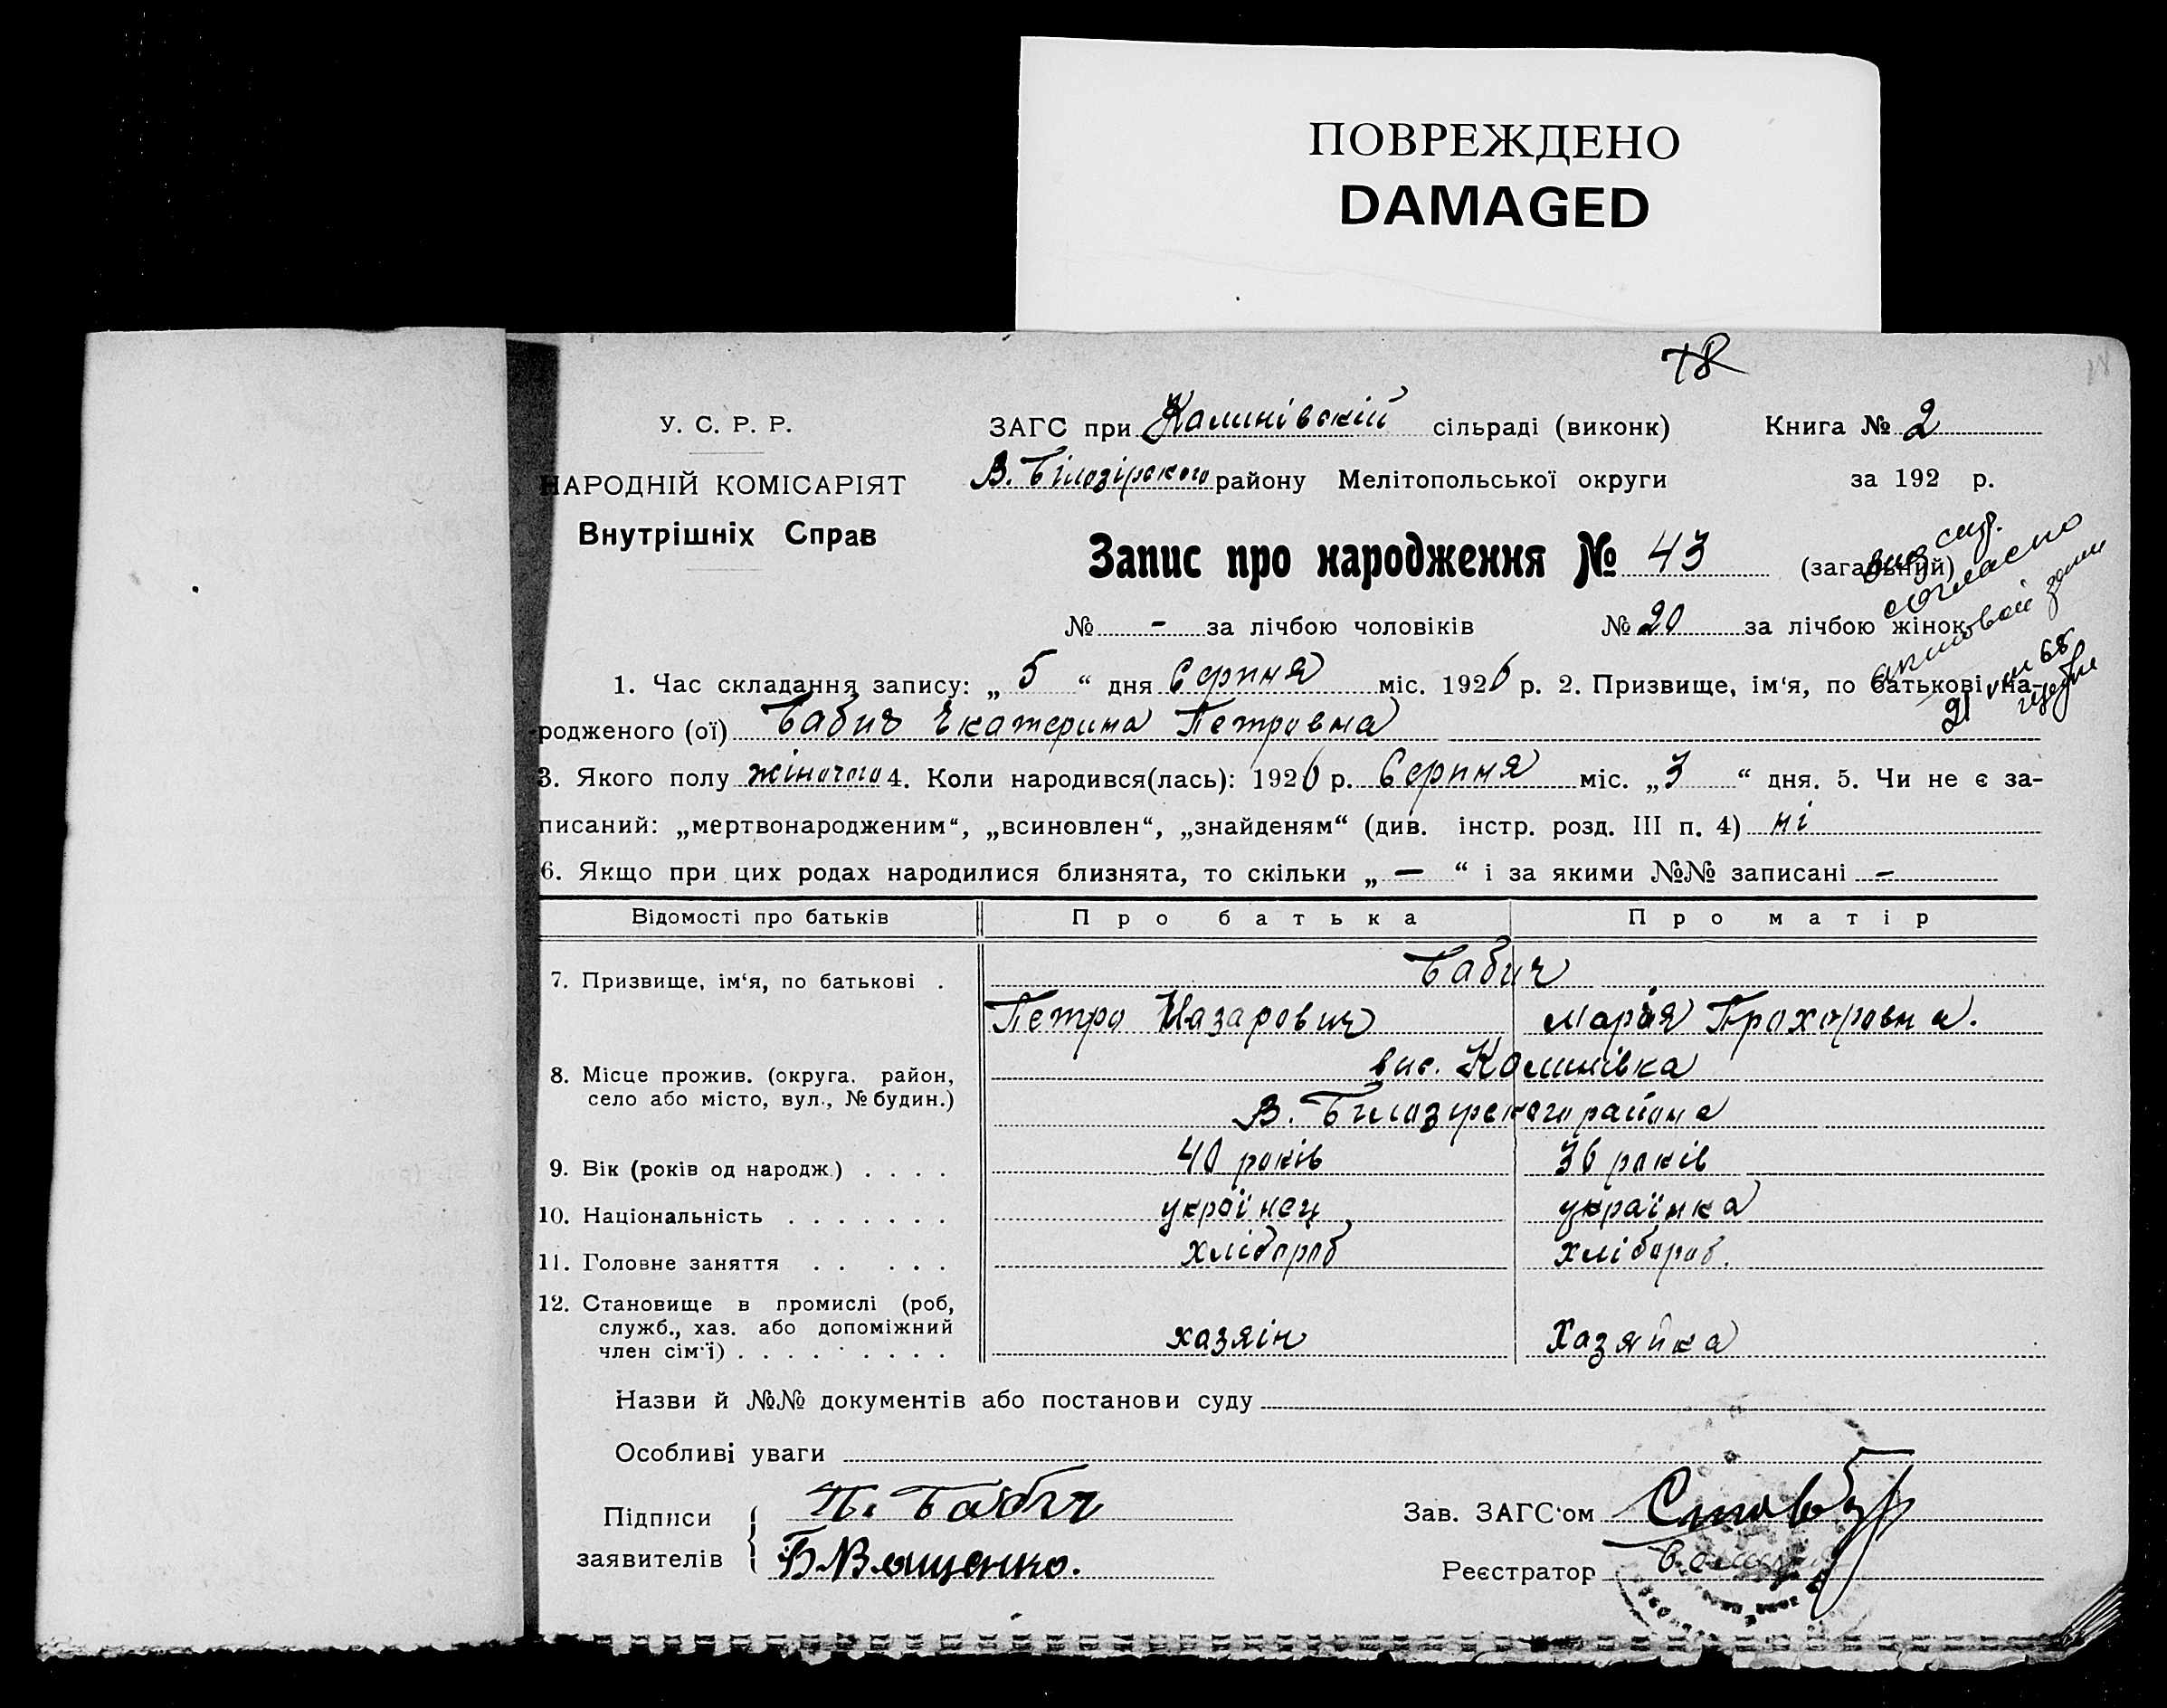 ПОВРЕЖДЕНО
DAMAGED
78
У. С. Р. Р.
ЗАГС при Калинівській сільраді (виконк) Книга № 2
НАРОДНІЙ КОМІСАРІЯТ
В. Білозірского району Мелітопольської округи за 192 р.
Внутрішніх Справ
Запис про народження № 43 (загальний)
№ - за лічбою чоловіків № 20 за лічбою жінок
согласно
актовой
1. Час складання запису: „ 5 “ дня Серпня міс. 1926 р. 2. Призвище, ім'я, по батькові на-
родженого (ої) Бабич Екатерина Петровна
3. Якого полу жіночого 4. Коли народився(лась): 1926 р. Серпня міс. „3 “ дня. 5. Чи не є за-
писаний: „мертвонародженим“, „всиновлен“, „знайденям“ (див. інстр. розд. III п. 4) ні
6. Якщо при цих родах народилися близнята, то скільки „ — “ і за якими №№ записані -
Відомості про батьків Про батька Про матір
7. Призвище, ім‘я, по батькові . Бабич
Петро Назарович Марія Прохоровна.
8. Місце прожив. (округа. район, вис. Калинівка
село або місто, вул., № будин.) В. Білозирского района
9. Вік (років од народж.) . . . . 40 років 36 років
10. Національність . . . . . . . українец українка
11. Головне заняття . . . . . хлібороб хлібороб.
12. Становище в промислі (роб,
служб., хаз. або допоміжний
член сім'ї) . . . . . . . . . хазяін Хазяйка
Назви й №№ документів або постанови суду
Особливі уваги
Підписи П. Бабич Зав. ЗАГС'ом
заявителів Б Ващенко. Реєстратор